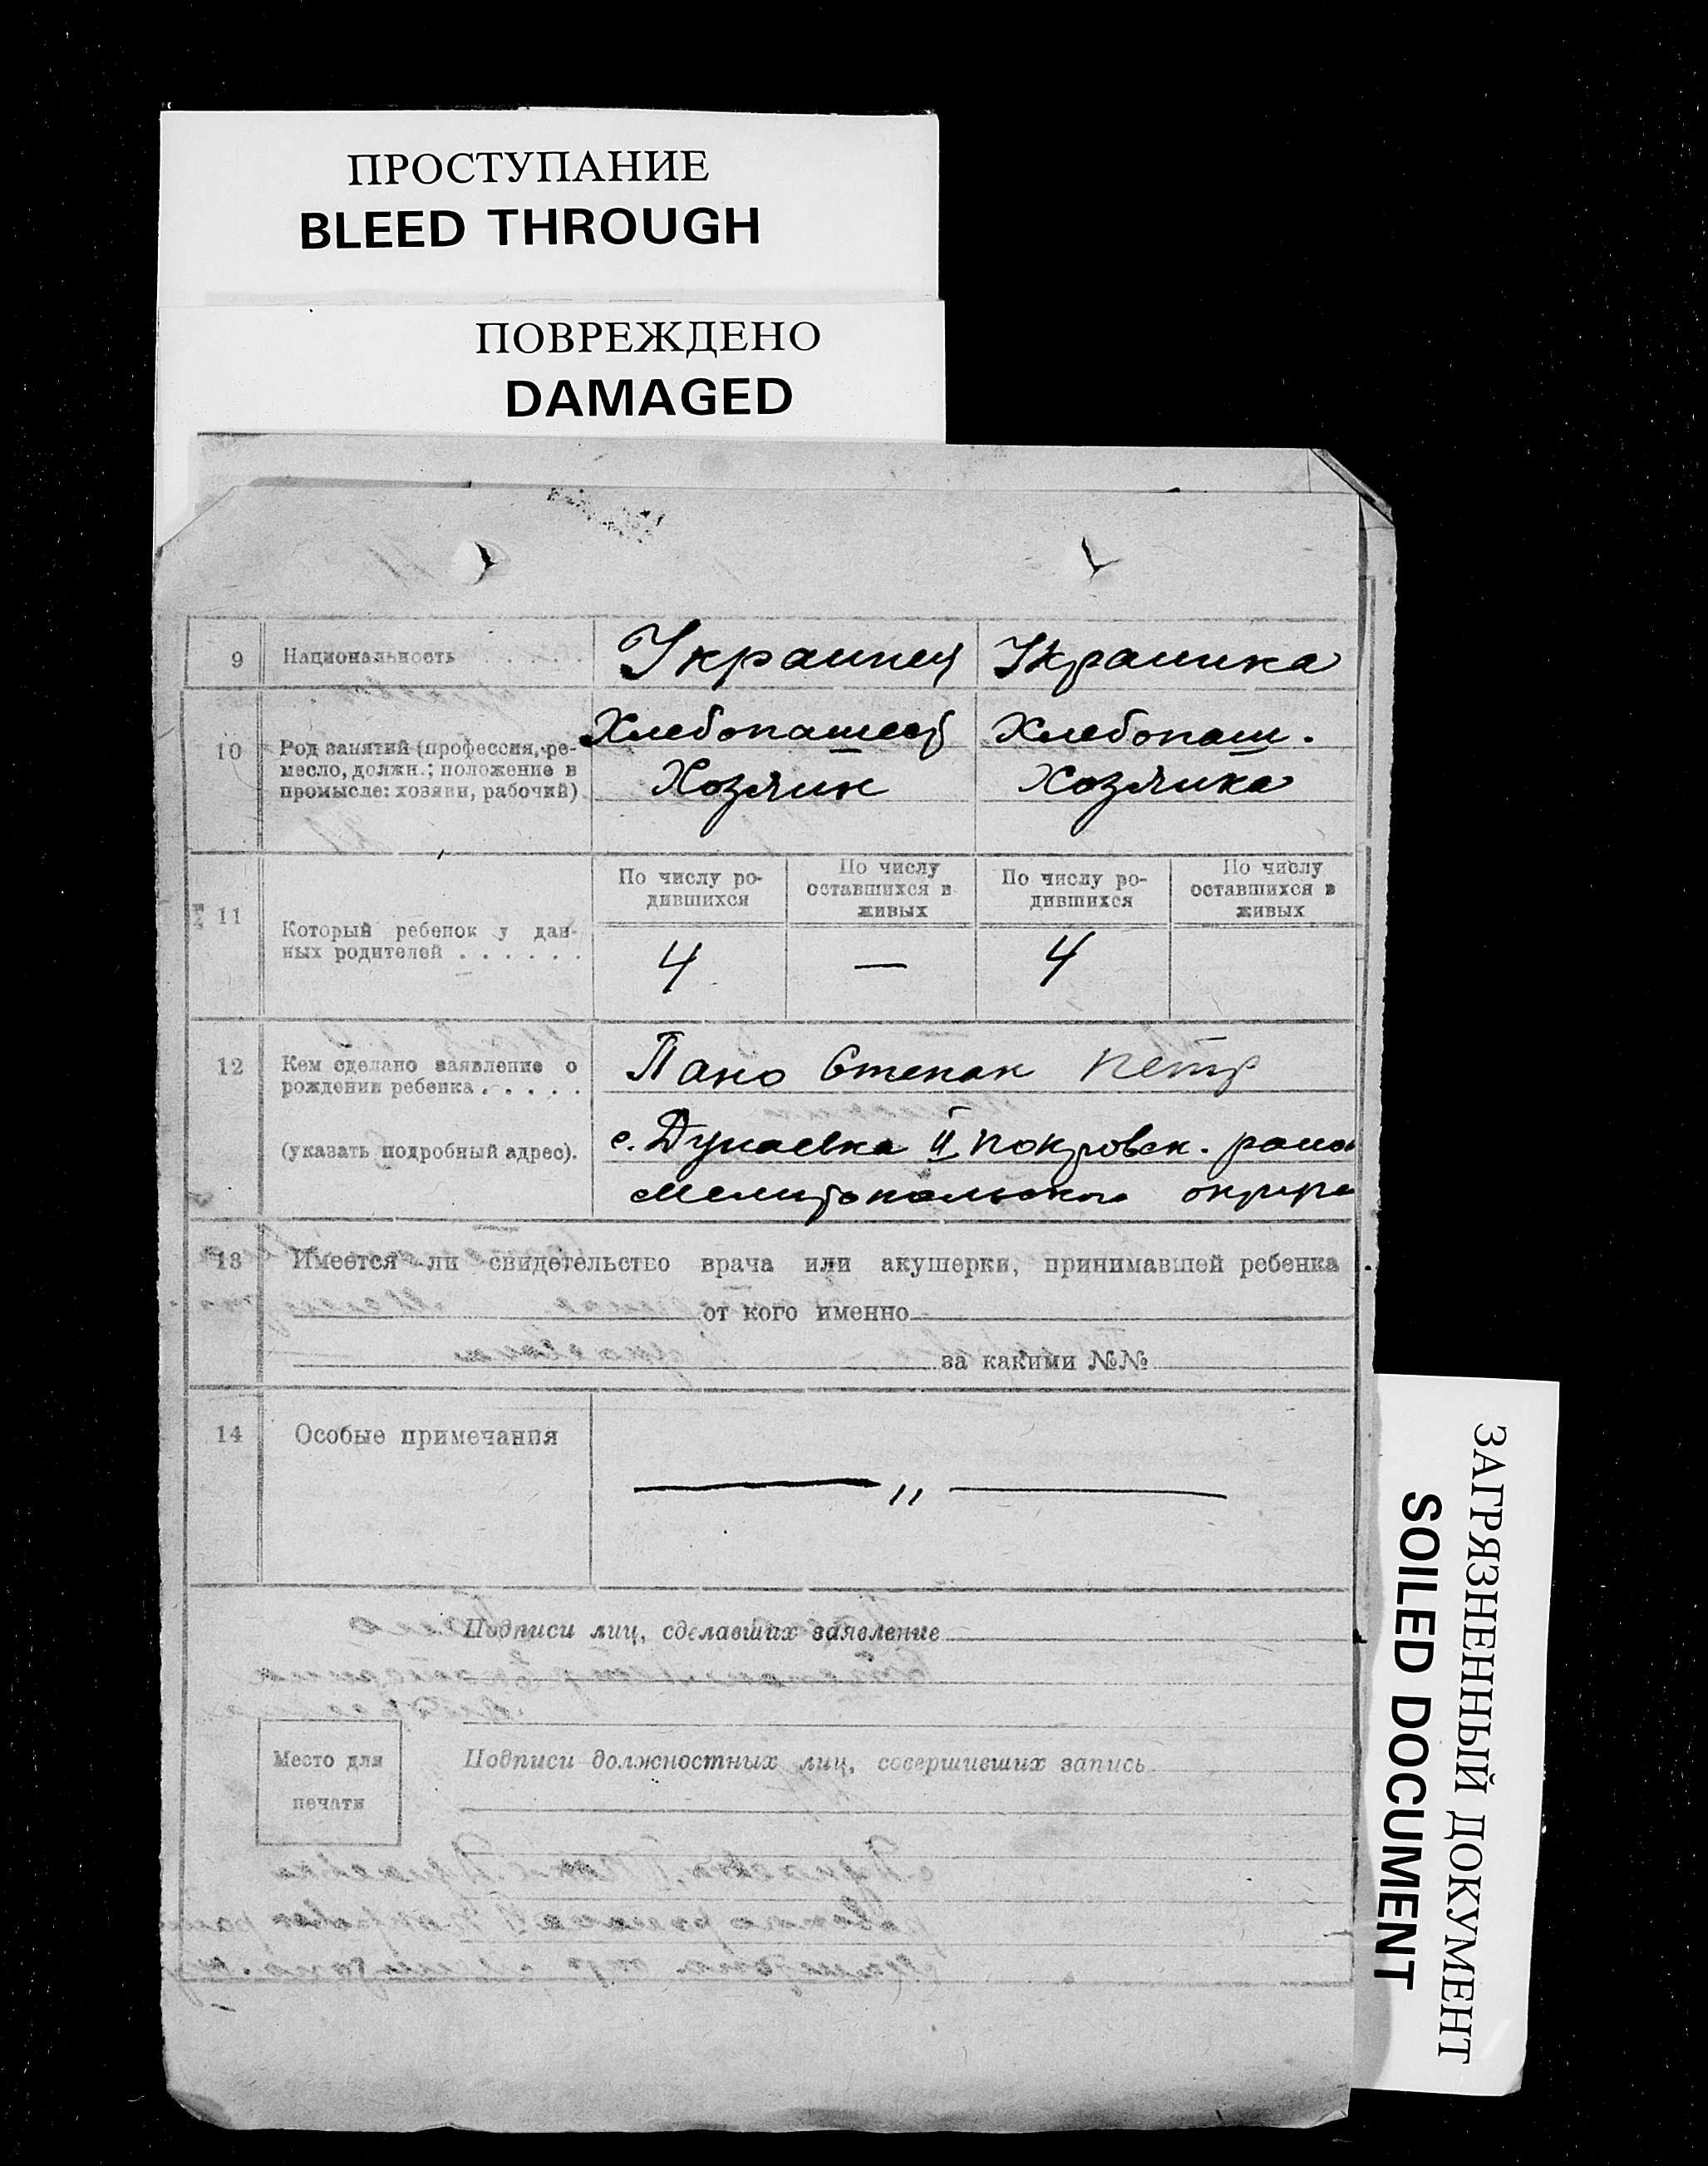 ПРОСТУПАНИЕ
BLEED THROUGH
ПОВРЕЖДЕНО
DAMAGED
9 Национальность . . . . . Украинец Украинка
10 Род занятий (профессия, ре-
месло, должн.; положение в
промысле: хозяин, рабочий)
Хлебопашец Хлебопаш.
Хозяин Хозяйка
11 Который ребенок у дан-
ных родителей . . . . . .
По числу ро-
дившихся
По числу
оставшихся в
живых
По числу ро-
дившихся
По числу
оставшихся в
живых
4 — 4
12 Кем сделано заявление о
рождении ребенка . . . . .
(указать подробный адрес).
Пано Степан Петр
с. Дунаевка II Покровск. район
Мелитопольского округа
13 Имеется ли свидетельство врача или акушерки, принимавшей ребенка
от кого именно
за какими №№
14 Особые примечания
— „ —
Подписи лиц, сделавших заявление
Место для
печати
Подписи должностных лиц, совершивших запись
ЗАГРЯЗНЕННЫЙ ДОКУМЕНТ
SOILED DOCUMENT